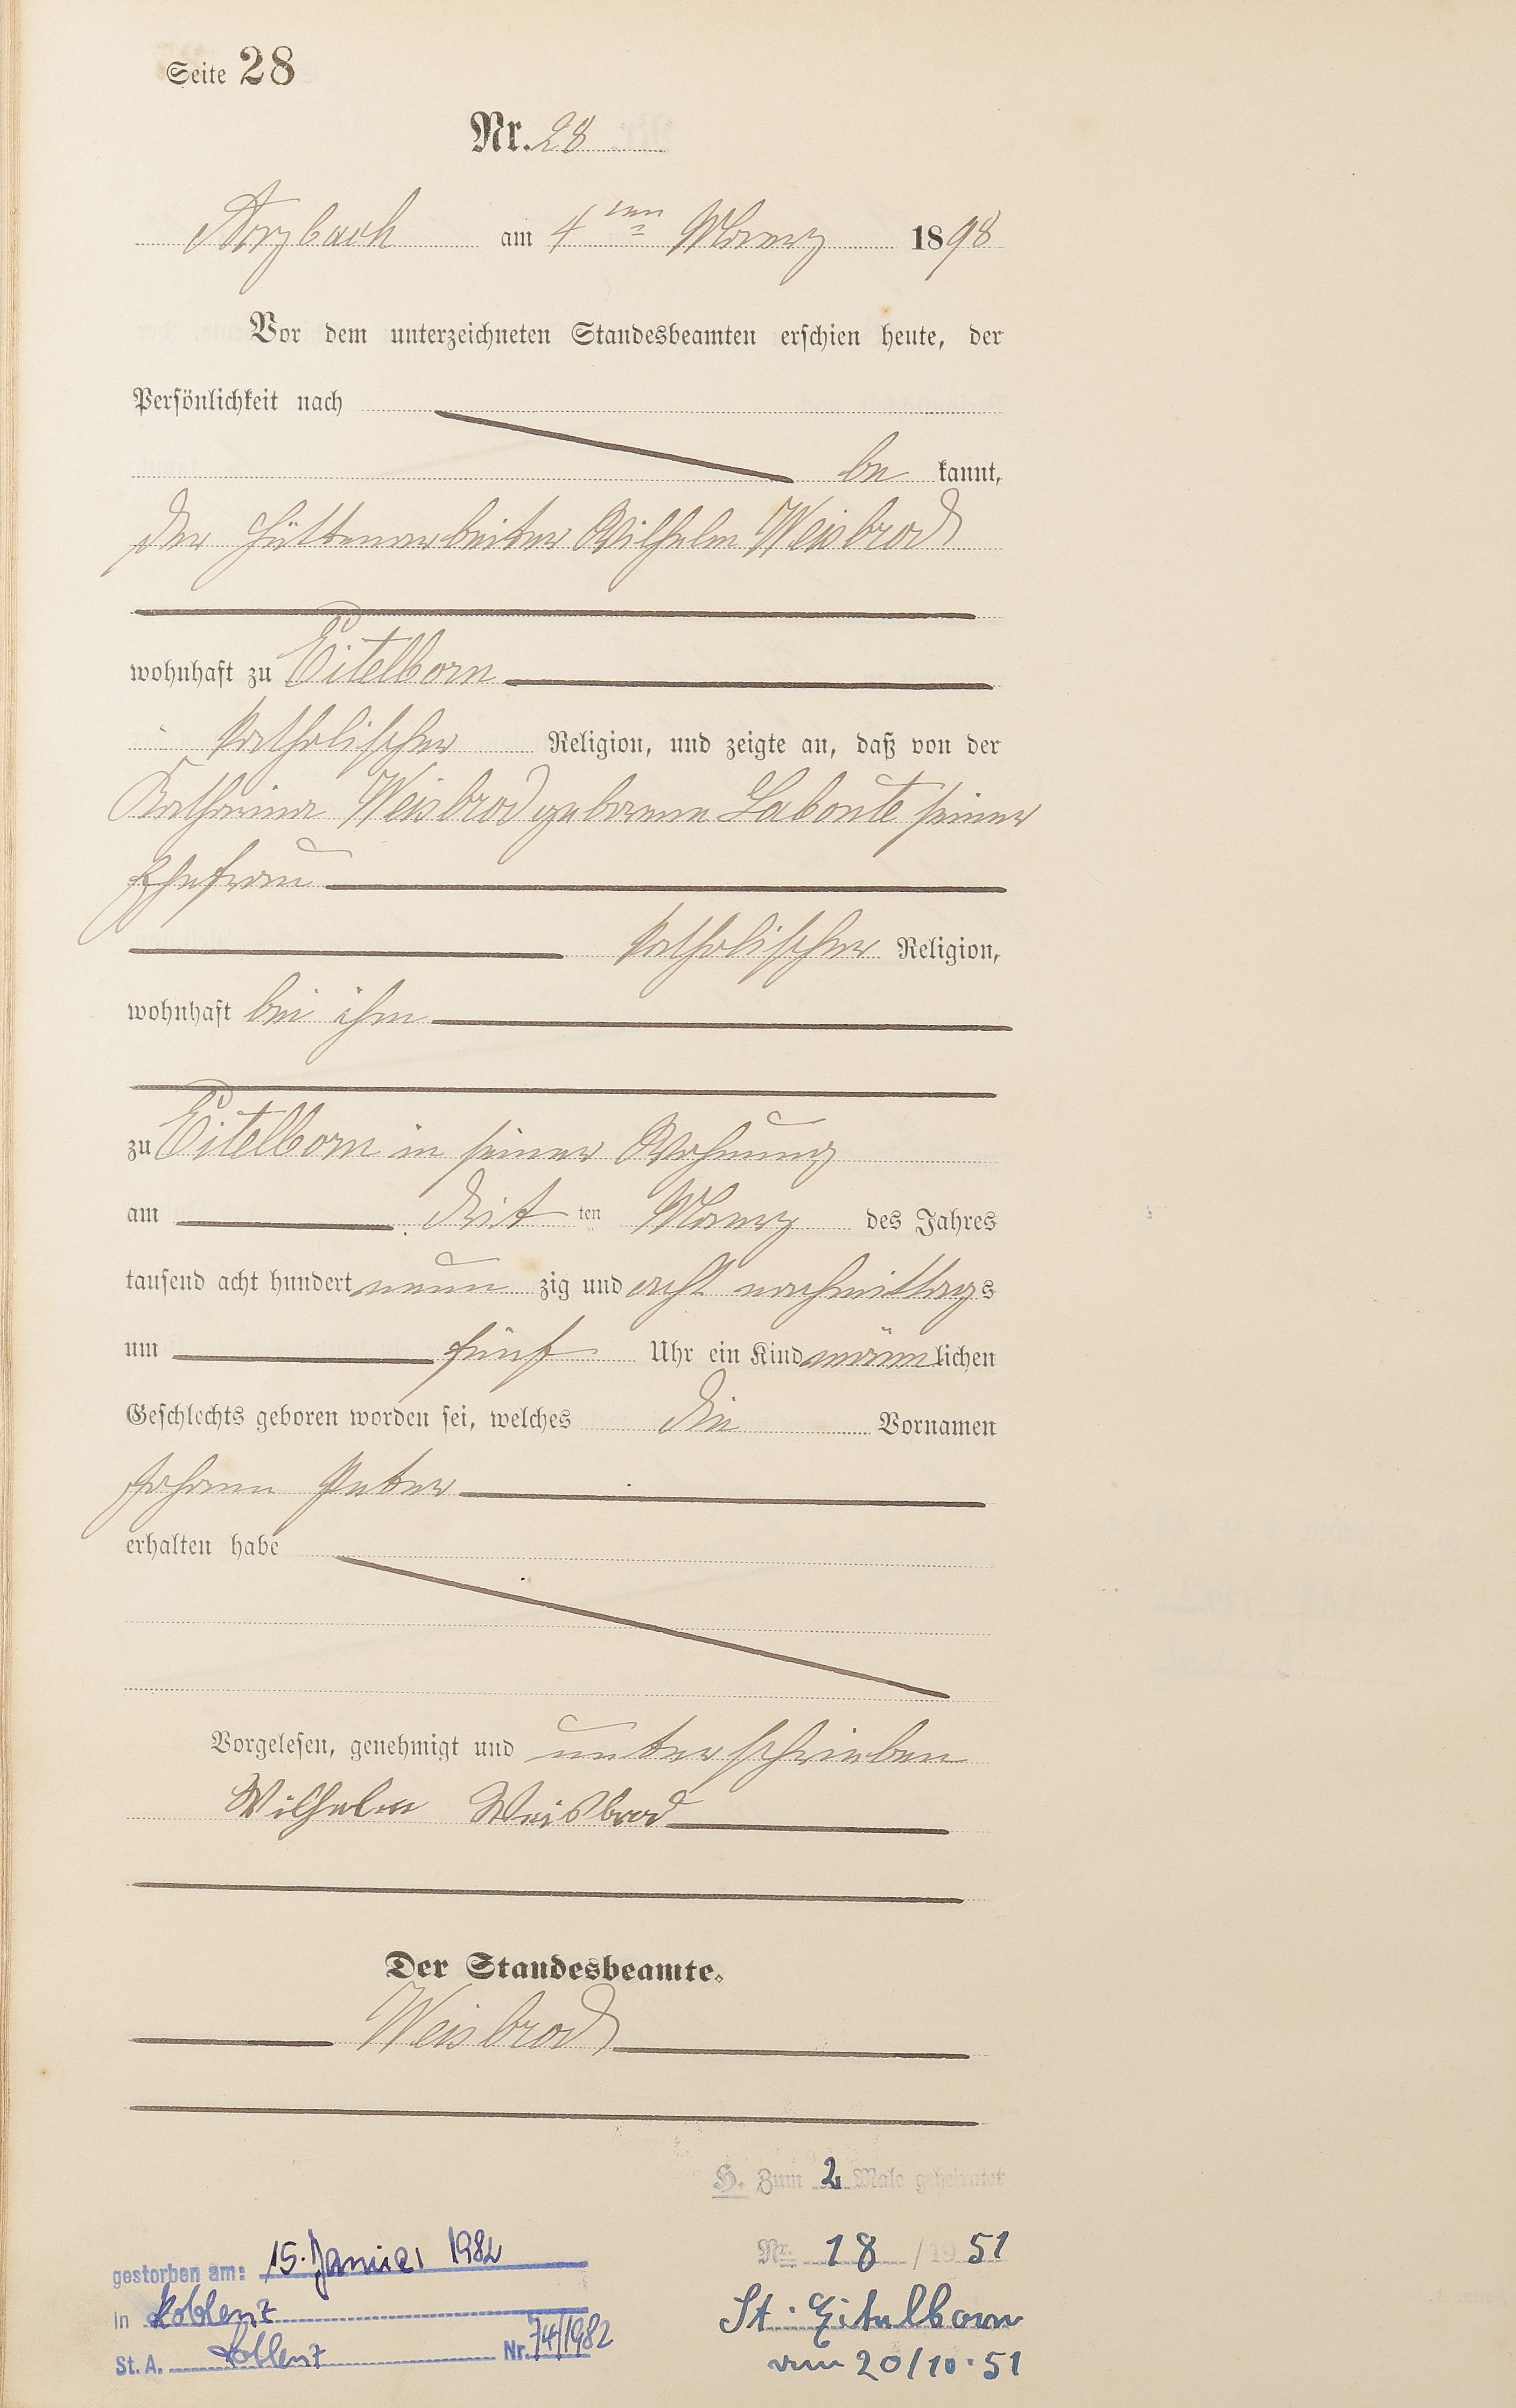 Seite 28
Nr. 28
Arzbach am 4ten Maerz 1898
Vor dem unterzeichneten Standesbeamten erschien heute, der
Persönlichkeit nach
be kannt,
der Hüttenarbeiter Wilhelm Weisbrod
wohnhaft zu Eitelborn
katholischer Religion, und zeigte an, daß von der
Katharina Weisbrod geborene Labonte seiner
Ehefrau
katholischer Religion,
wohnhaft bei ihm
zu Eitelborn in seiner Wohnung
am drit ten Maerz des Jahres
tausend acht hundert neun zig und acht nachmittags
um fünf Uhr ein Kind männlichen
Geschlechts geboren worden sei, welches die Vornamen
Johann Peter
erhalten habe
Vorgelesen, genehmigt und unterschrieben
Wilhelm Weisbrod
Der Standesbeamte.
Weisbrod
H. Zum 2. Male geheiratet
Nr. 18 / 1951
St. Eitelborn
vom 20/10.51
gestorben am: 15. Januar 1982
in Koblenz
St. A. Koblenz Nr. 74/1982